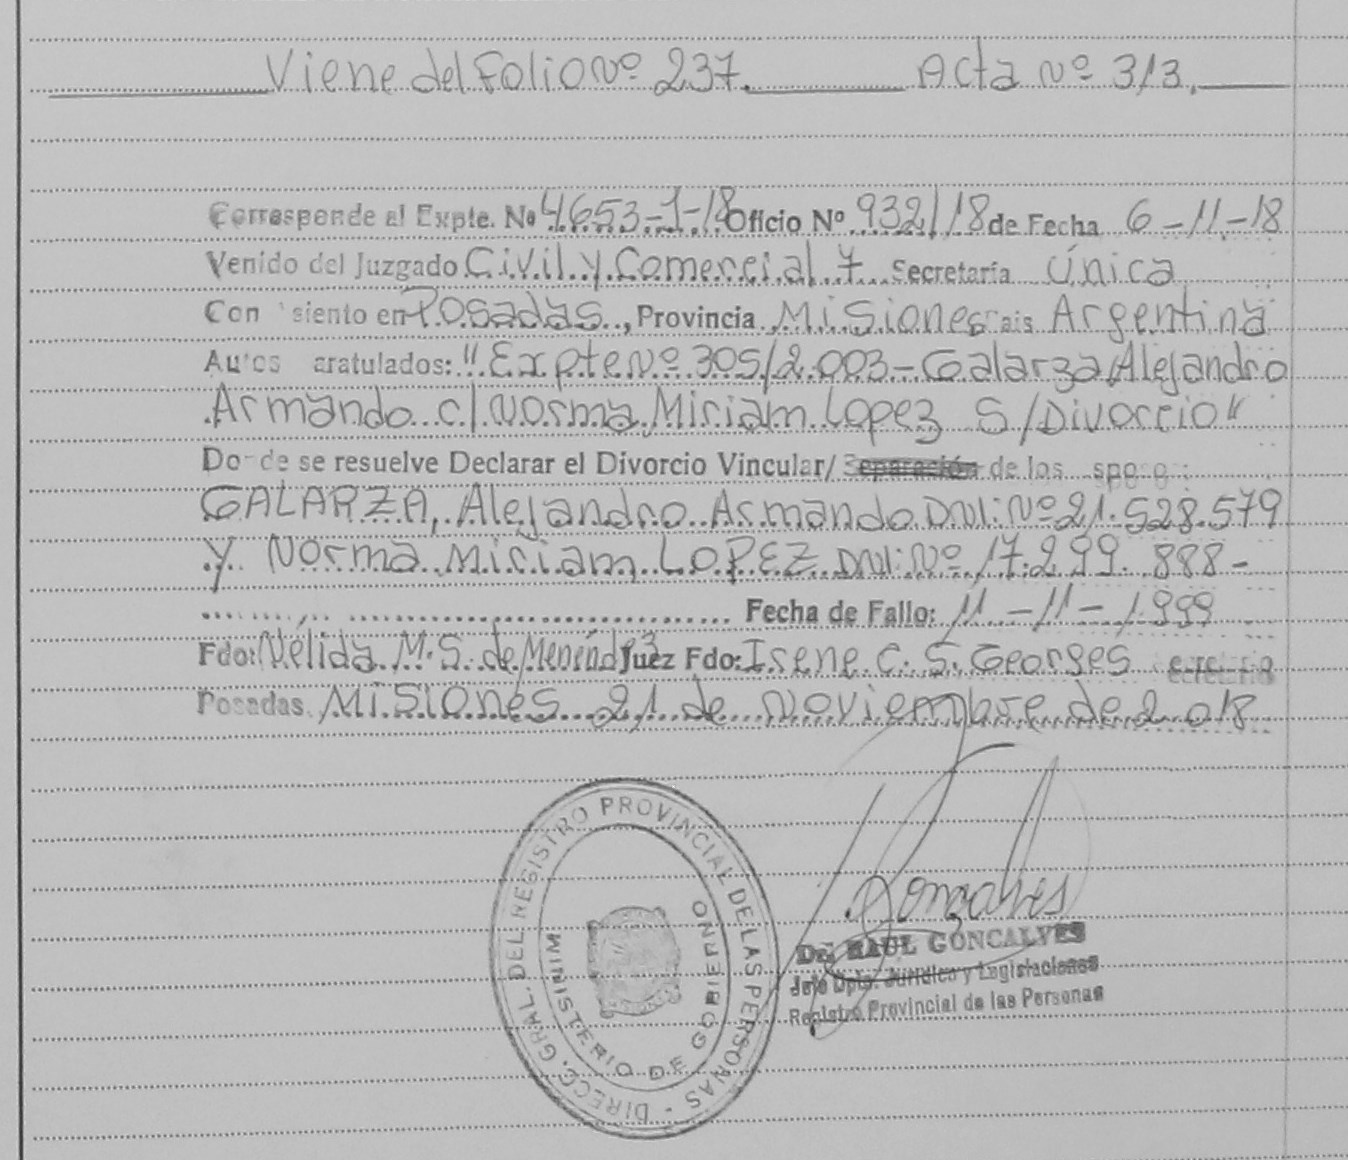 Viene del Folio Nº 237. Acta Nº 313.
Corresponde al Expte. Nº 4653-1-18 Oficio Nº 932/18 de Fecha 6-11-18
Venido del Juzgado Civil y Comercial 7 Secretaría Única
Con siento en Posadas, Provincia Misiones ais Argentina
Autos aratulados: "Expte Nº 305/2.003- Galarza Alejandro
Armando c/ Norma Miriam Lopez S/Divorcio"
Donde se resuelve Declarar el Divorcio Vincular/ Separación de los spo o
GALARZA, Alejandro Armando DNI: Nº 21.528.579
y Norma Miriam LOPEZ DNI: Nº 17.299.888-
Fecha de Fallo: 11-11-1999
Fdo: Nélida M. S. de Menéndez Juez Fdo: Irene C. S. Georges
Posadas, Misiones 21 de Noviembre de 2018
DIRECC. GRAL. DEL REGISTRO PROVINCIAL DE LAS PERSONAS -
MINISTERIO DE GOBIERNO
Goncalves
Dr. RAUL GONCALVES
Jefe Dpto. Jurídico y Legislaciones
Registro Provincial de las Personas